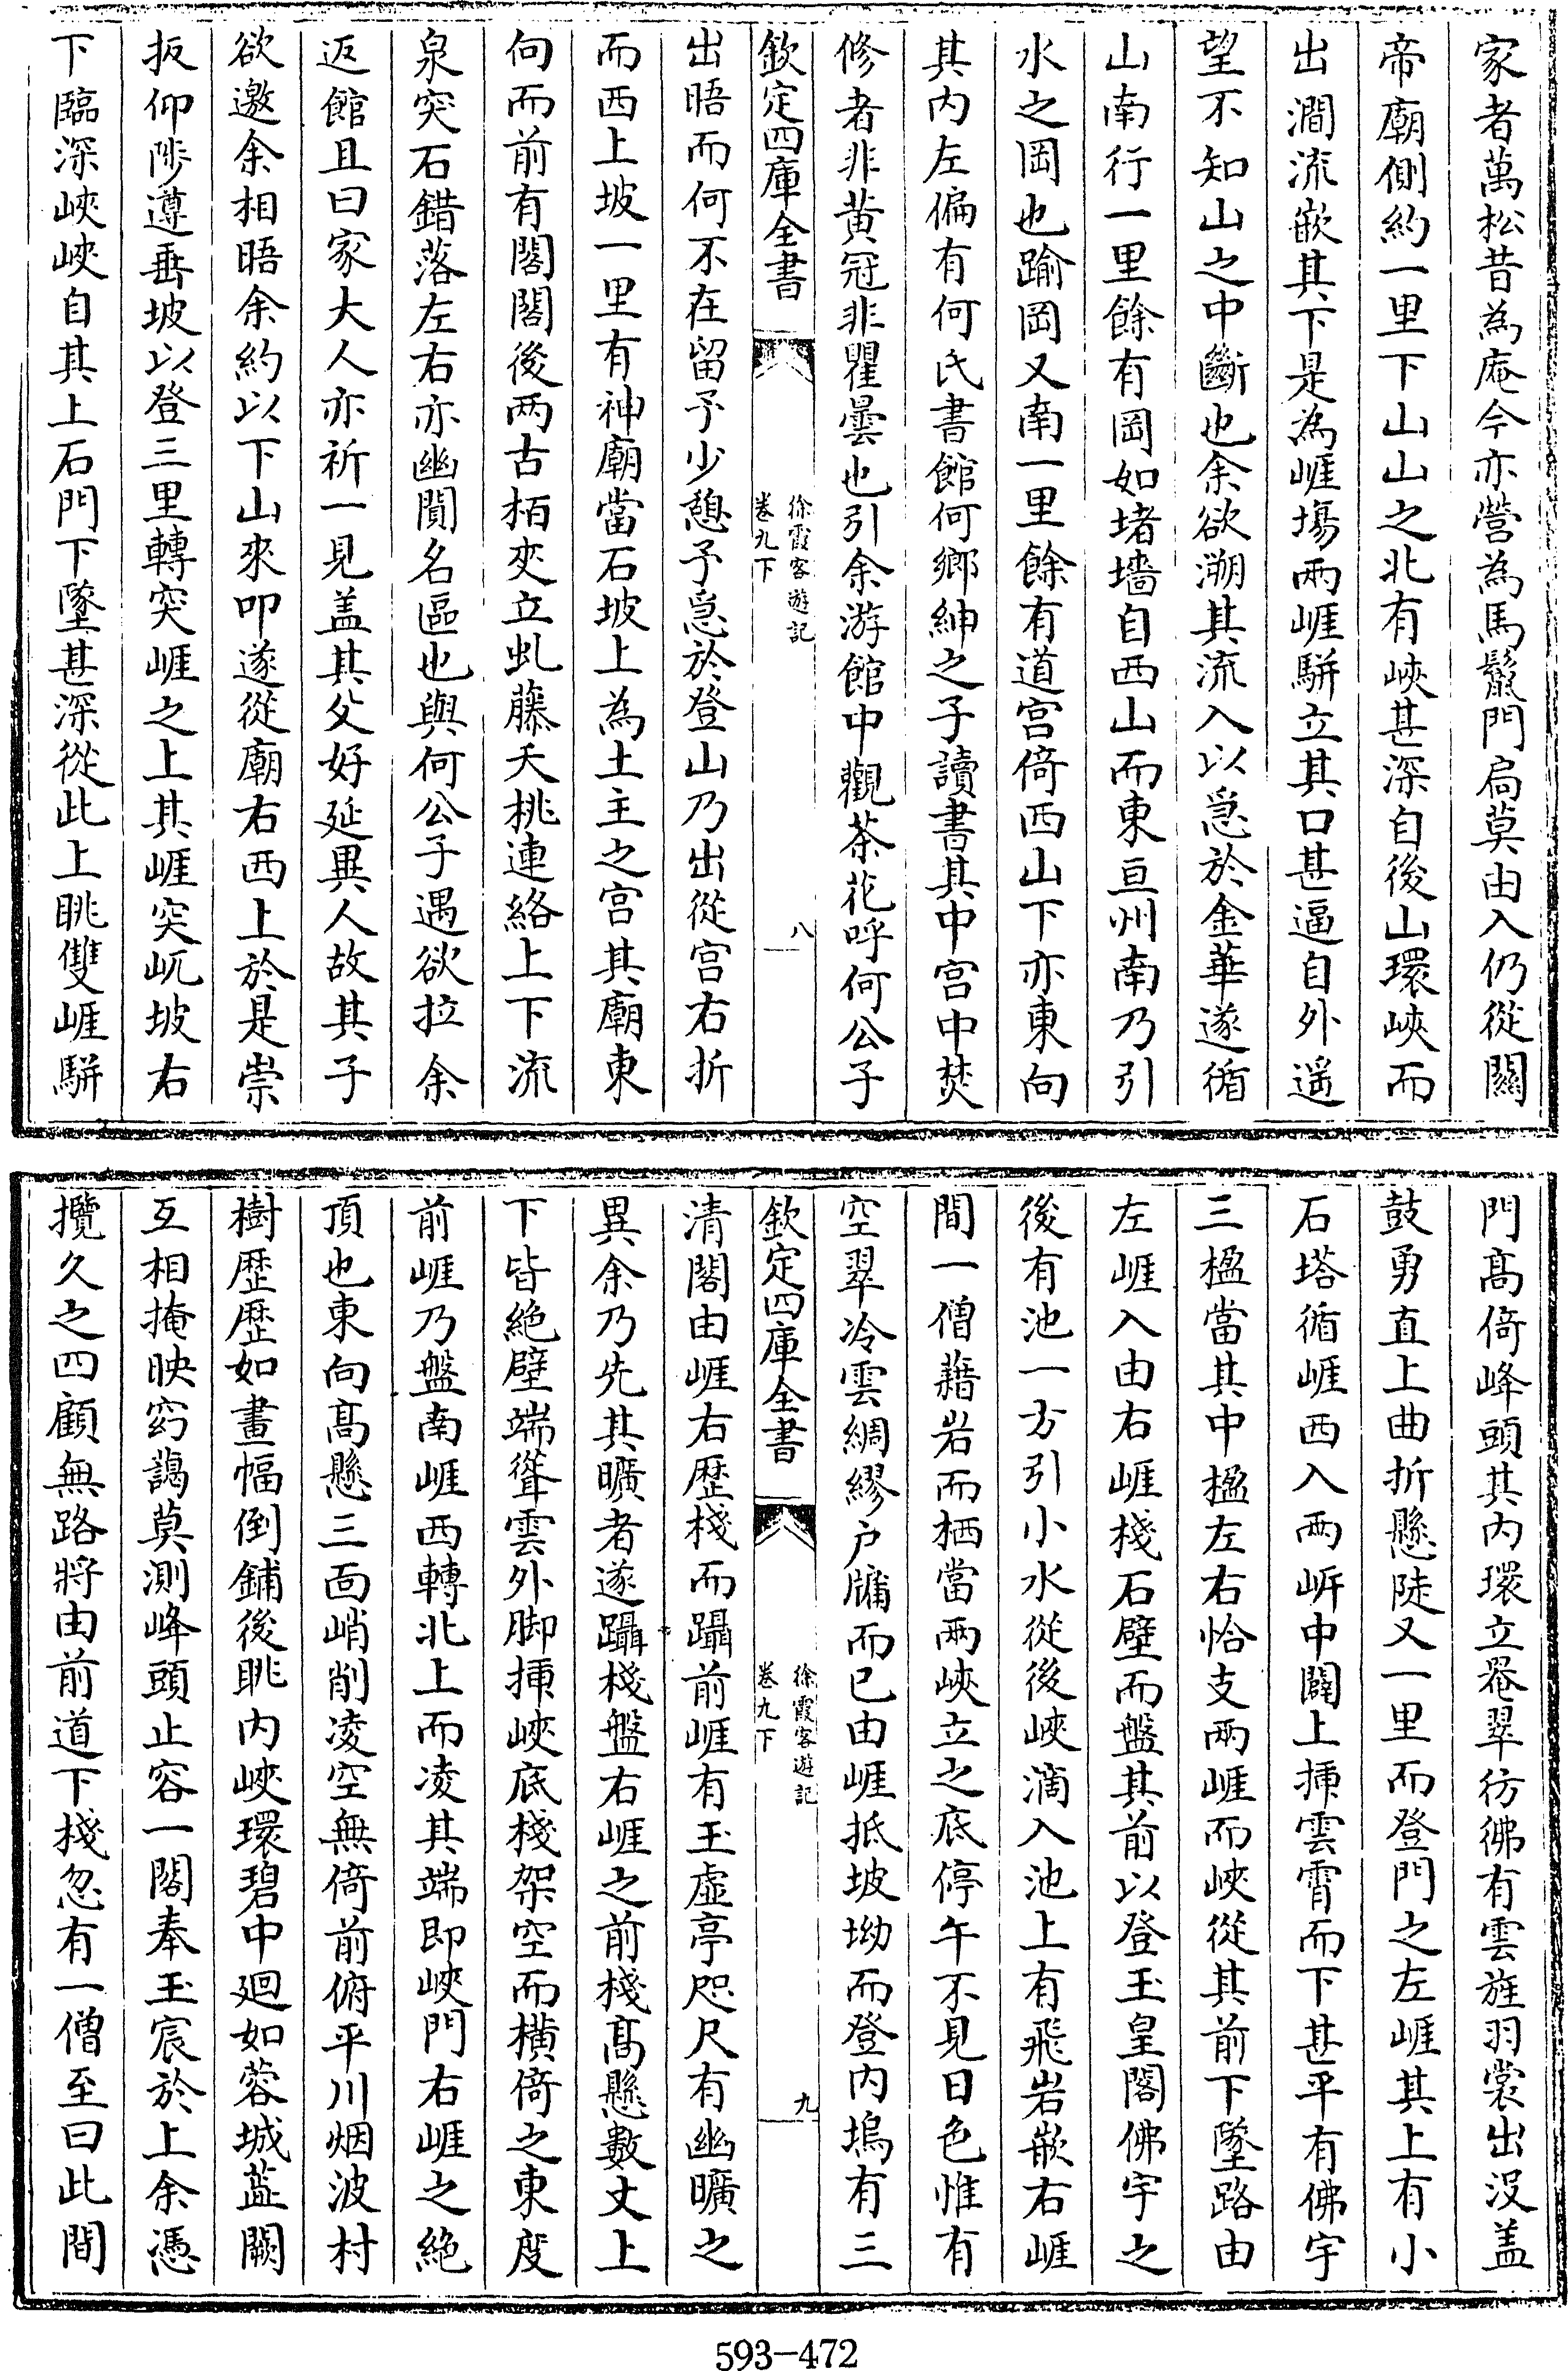 家者萬松昔為庵今亦營為馬鬛門扃莫由入仍從關
帝廟側約一里下山山之北有峽甚深自後山環峽而
出澗流嵌其下是為崕塲兩崕騈立其口甚逼自外遥
望不知山之中斷也余欲溯其流入以急於金華遂循
山南行一里餘有岡如堵墻自西山而東亘州南乃引
水之岡也踰岡又南一里餘有道宫倚西山下亦東向
其内左偏有何氏書館何鄉紳之子讀書其中宫中焚
修者非黄冠非瞿曇也引余游館中觀茶花呼何公子
欽定四庫全書
徐霞客遊記
卷九下
八
出晤而何不在留予少憩予急於登山乃出從宫右折
而西上坡一里有神廟當石坡上為土主之宫其廟東
向而前有閣閣後两古栢夾立虬藤夭桃連絡上下流
泉突石錯落左右亦幽閴名區也與何公子遇欲拉余
返館且曰家大人亦祈一見盖其父好延異人故其子
欲邀余相晤余約以下山來叩遂從廟右西上於是崇
扳仰陟遵垂坡以登三里轉突崕之上其崕突屼坡右
下臨深峽峽自其上石門下墜甚深從此上眺雙崕騈
門髙倚峰頭其内環立罨翠彷彿有雲旌羽裳出没盖
鼓勇直上曲折懸陡又一里而登門之左崕其上有小
石塔循崕西入两㟁中闢上揷雲霄而下甚平有佛宇
三楹當其中楹左右恰支兩崕而峽從其前下墜路由
左崕入由右崕棧石壁而盤其前以登玉皇閣佛宇之
後有池一方引小水從後峽滴入池上有飛岩嵌右崕
間一僧藉岩而栖當兩峽立之底停午不見日色惟有
空翠冷雲綢繆户牖而已由崕抵坡坳而登内塢有三
欽定四庫全書
徐霞客遊記
卷九下
九
清閣由崕右歴棧而躡前崕有玉虛亭咫尺有幽曠之
異余乃先其曠者遂躡棧盤右崕之前棧髙懸數丈上
下皆絶壁端聳雲外脚揷峽底棧架空而横倚之東度
前崕乃盤南崕西轉北上而凌其端即峽門右崕之絶
頂也東向髙懸三面峭削凌空無倚前俯平川烟波村
樹歴歴如畫幅倒鋪後眺内峽環碧中廻如蓉城蓝闕
互相掩映窈藹莫測峰頭止容一閣奉玉宸於上余憑
攬久之四顧無路將由前道下棧忽有一僧至曰此間
593-472